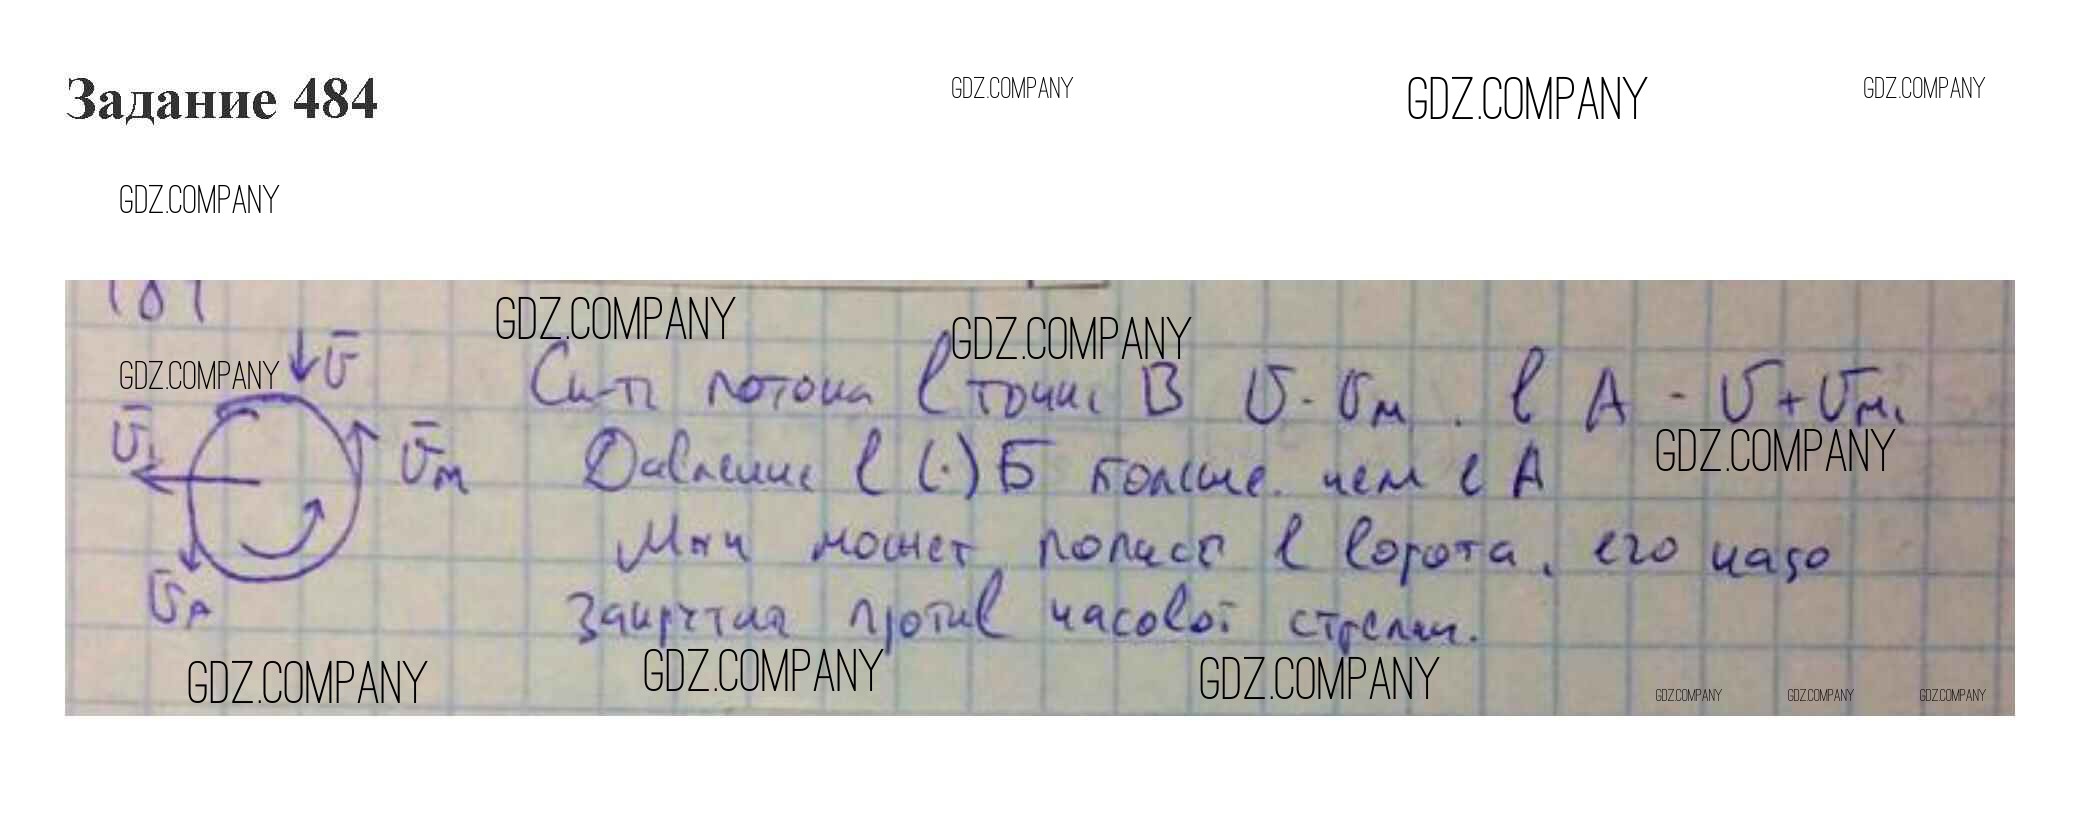 Задание 484
GDZ.COMPANY GDZ.COMPANY GDZ.COMPANY
GDZ.COMPANY
GDZ.COMPANY GDZ.COMPANY
GDZ.COMPANY
потока в точке В υ - υм . в А - υ + υм.
GDZ.COMPANY
Давление в (·) Б больше. чем в А
Мяч может попасть в ворота, его надо
Закрутить против часовой стрелки.
GDZ.COMPANY GDZ.COMPANY GDZ.COMPANY GDZ.COMPANY GDZ.COMPANY GDZ.COMPANY
υ
υ₁
υм
υA